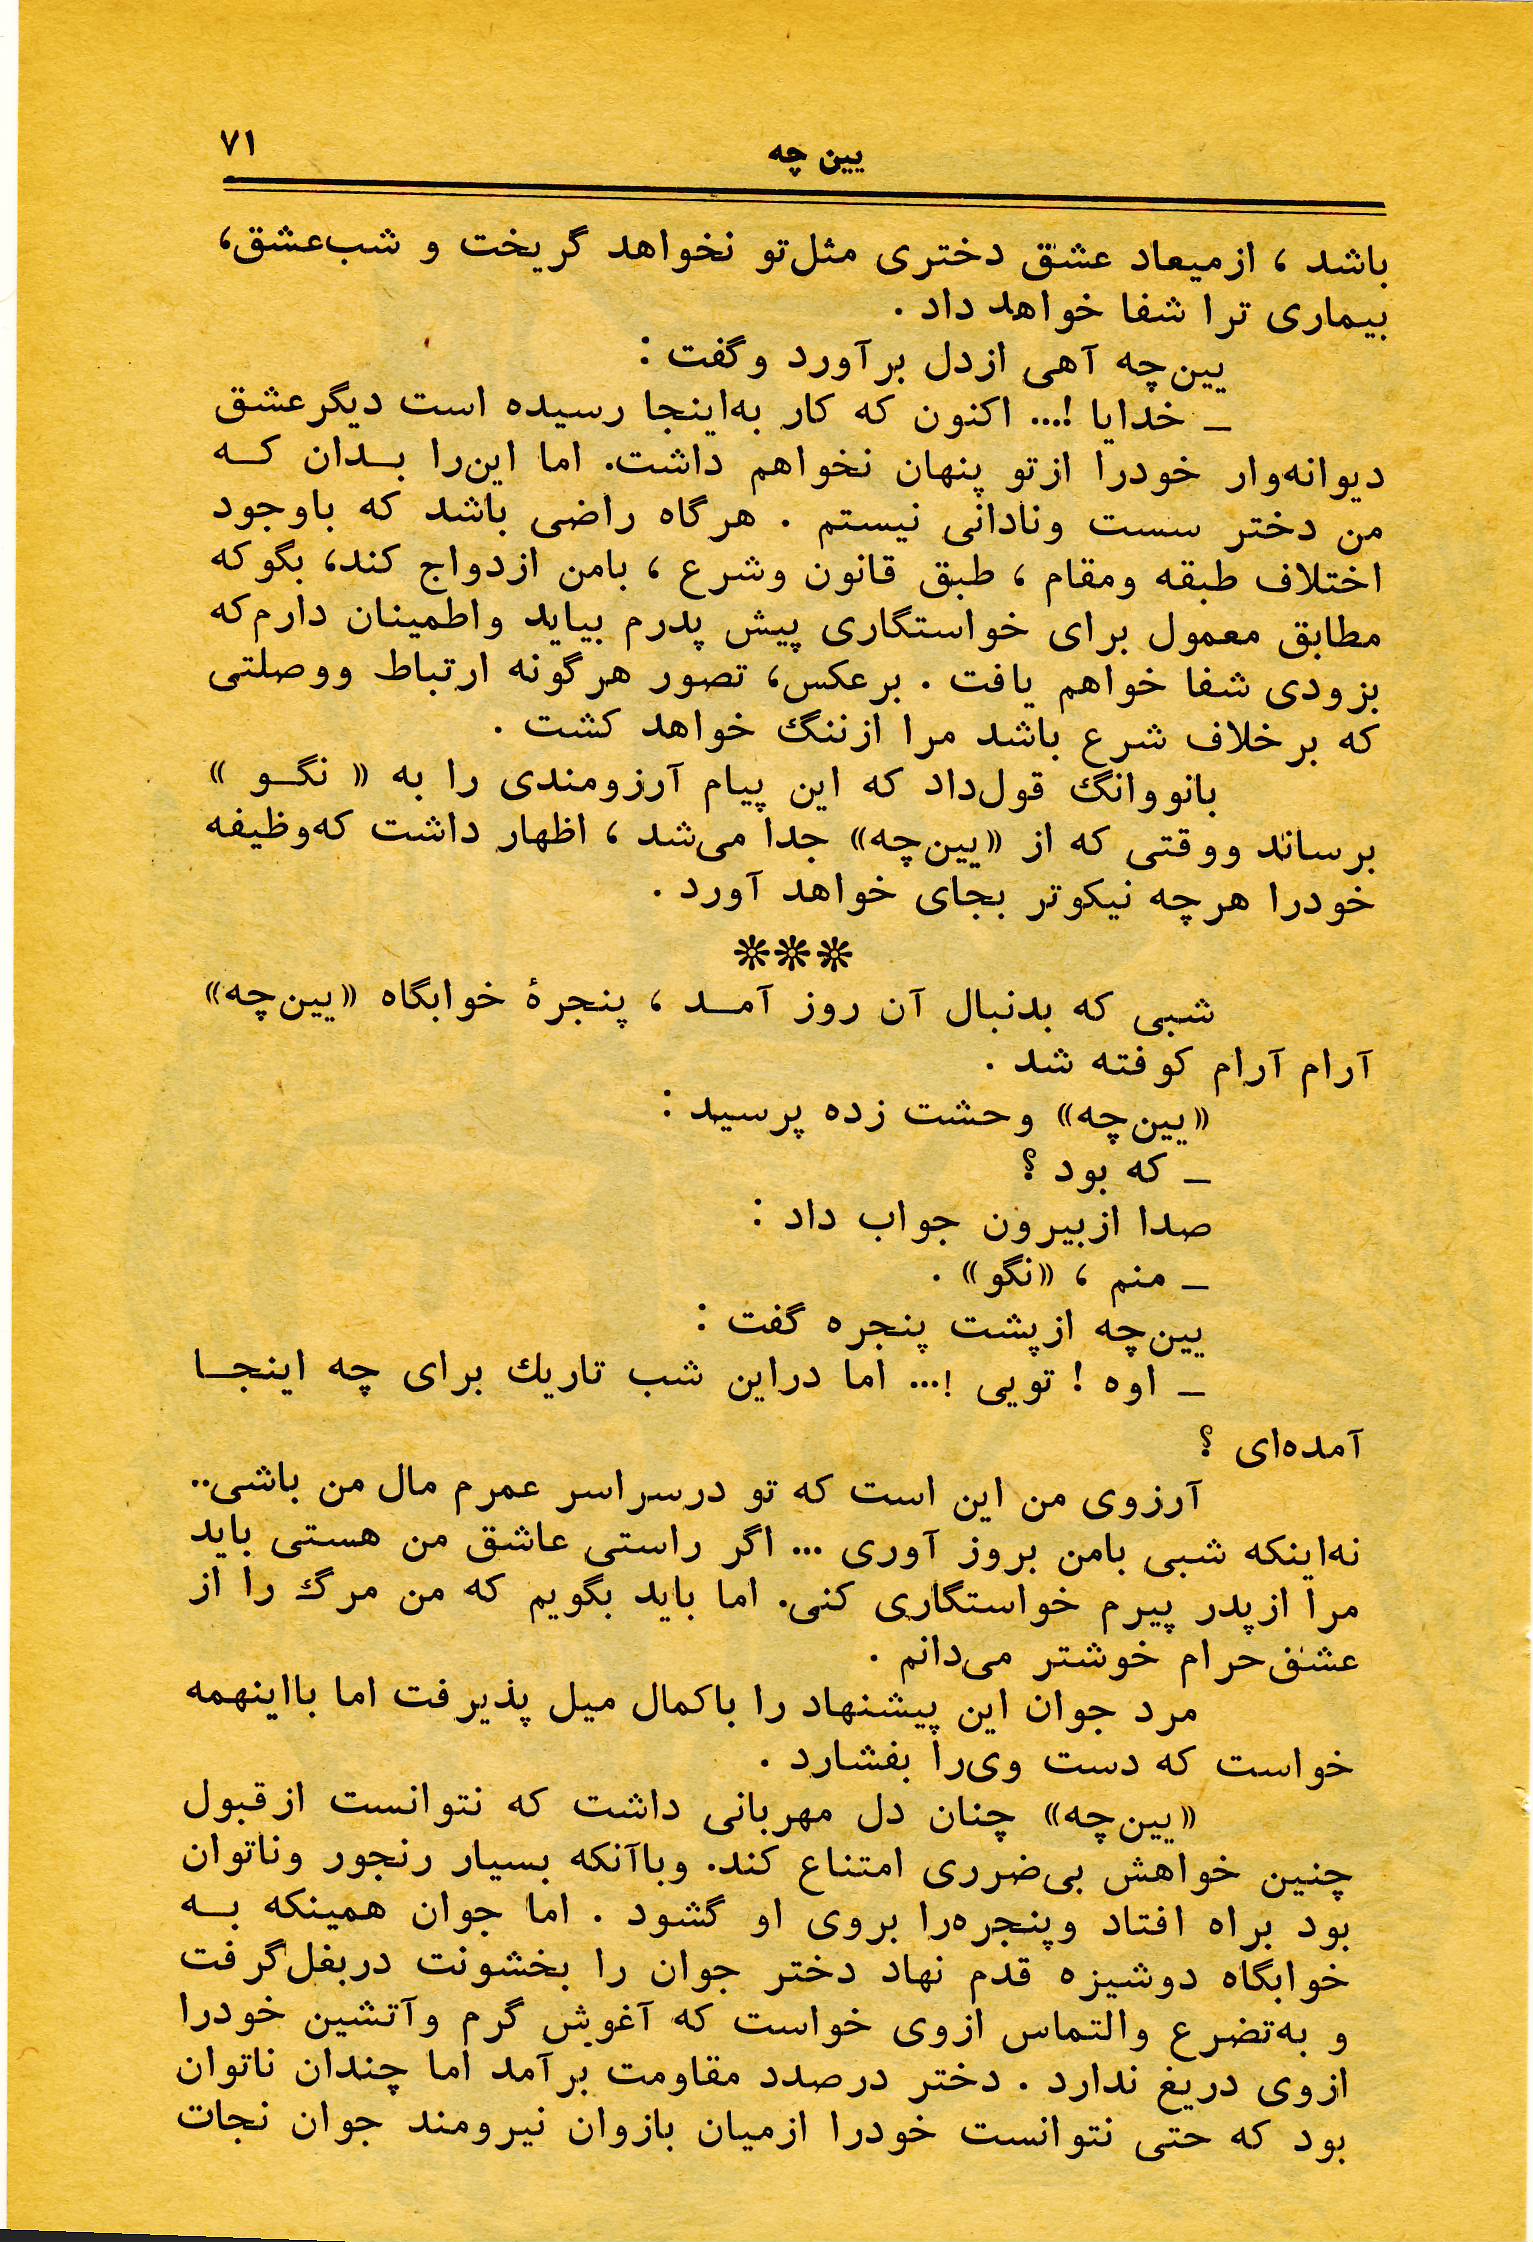 یین چه
۷۱
باشد ، ازمیعاد عشق دختری مثل‌تو نخواهد گریخت و شب‌عشق،
بیماری ترا شفا خواهد داد .
یین‌چه آهی ازدل برآورد وگفت :
ـ خدایا !... اکنون که کار به‌اینجا رسیده است دیگرعشق
دیوانه‌وار خودرا ازتو پنهان نخواهم داشت. اما این‌را بـدان کـه
من دختر سست ونادانی نیستم . هرگاه راضی باشد که باوجود
اختلاف طبقه ومقام ، طبق قانون وشرع ، بامن ازدواج کند، بگوکه
مطابق معمول برای خواستگاری پیش پدرم بیاید واطمینان دارم‌که
بزودی شفا خواهم یافت . برعکس، تصور هرگونه ارتباط ووصلتی
که برخلاف شرع باشد مرا ازننگ خواهد کشت .
بانووانگ قول‌داد که این پیام آرزومندی را به « نگـو »
برساند ووقتی که از «یین‌چه» جدا می‌شد ، اظهار داشت که‌وظیفه
خودرا هرچه نیکوتر بجای خواهد آورد .
❊❊❊
شبی که بدنبال آن روز آمـد ، پنجرهٔ خوابگاه «یین‌چه»
آرام آرام کوفته شد .
«یین‌چه» وحشت زده پرسید :
ـ که بود ؟
صدا ازبیرون جواب داد :
ـ منم ، «نگو» .
یین‌چه ازپشت پنجره گفت :
ـ اوه ! تویی !... اما دراین شب تاریك برای چه اینجـا
آمده‌ای ؟
آرزوی من این است که تو درسراسر عمرم مال من باشی..
نه‌اینکه شبی بامن بروز آوری ... اگر راستی عاشق من هستی باید
مرا ازپدر پیرم خواستگاری کنی. اما باید بگویم که من مرگ را از
عشق‌حرام خوشتر می‌دانم .
مرد جوان این پیشنهاد را باکمال میل پذیرفت اما بااینهمه
خواست که دست وی‌را بفشارد .
«یین‌چه» چنان دل مهربانی داشت که نتوانست ازقبول
چنین خواهش بی‌ضرری امتناع کند. وباآنکه بسیار رنجور وناتوان
بود براه افتاد وپنجره‌را بروی او گشود . اما جوان همینکه بـه
خوابگاه دوشیزه قدم نهاد دختر جوان را بخشونت دربغل‌گرفت
و به‌تضرع والتماس ازوی خواست که آغوش گرم وآتشین خودرا
ازوی دریغ ندارد . دختر درصدد مقاومت برآمد اما چندان ناتوان
بود که حتی نتوانست خودرا ازمیان بازوان نیرومند جوان نجات